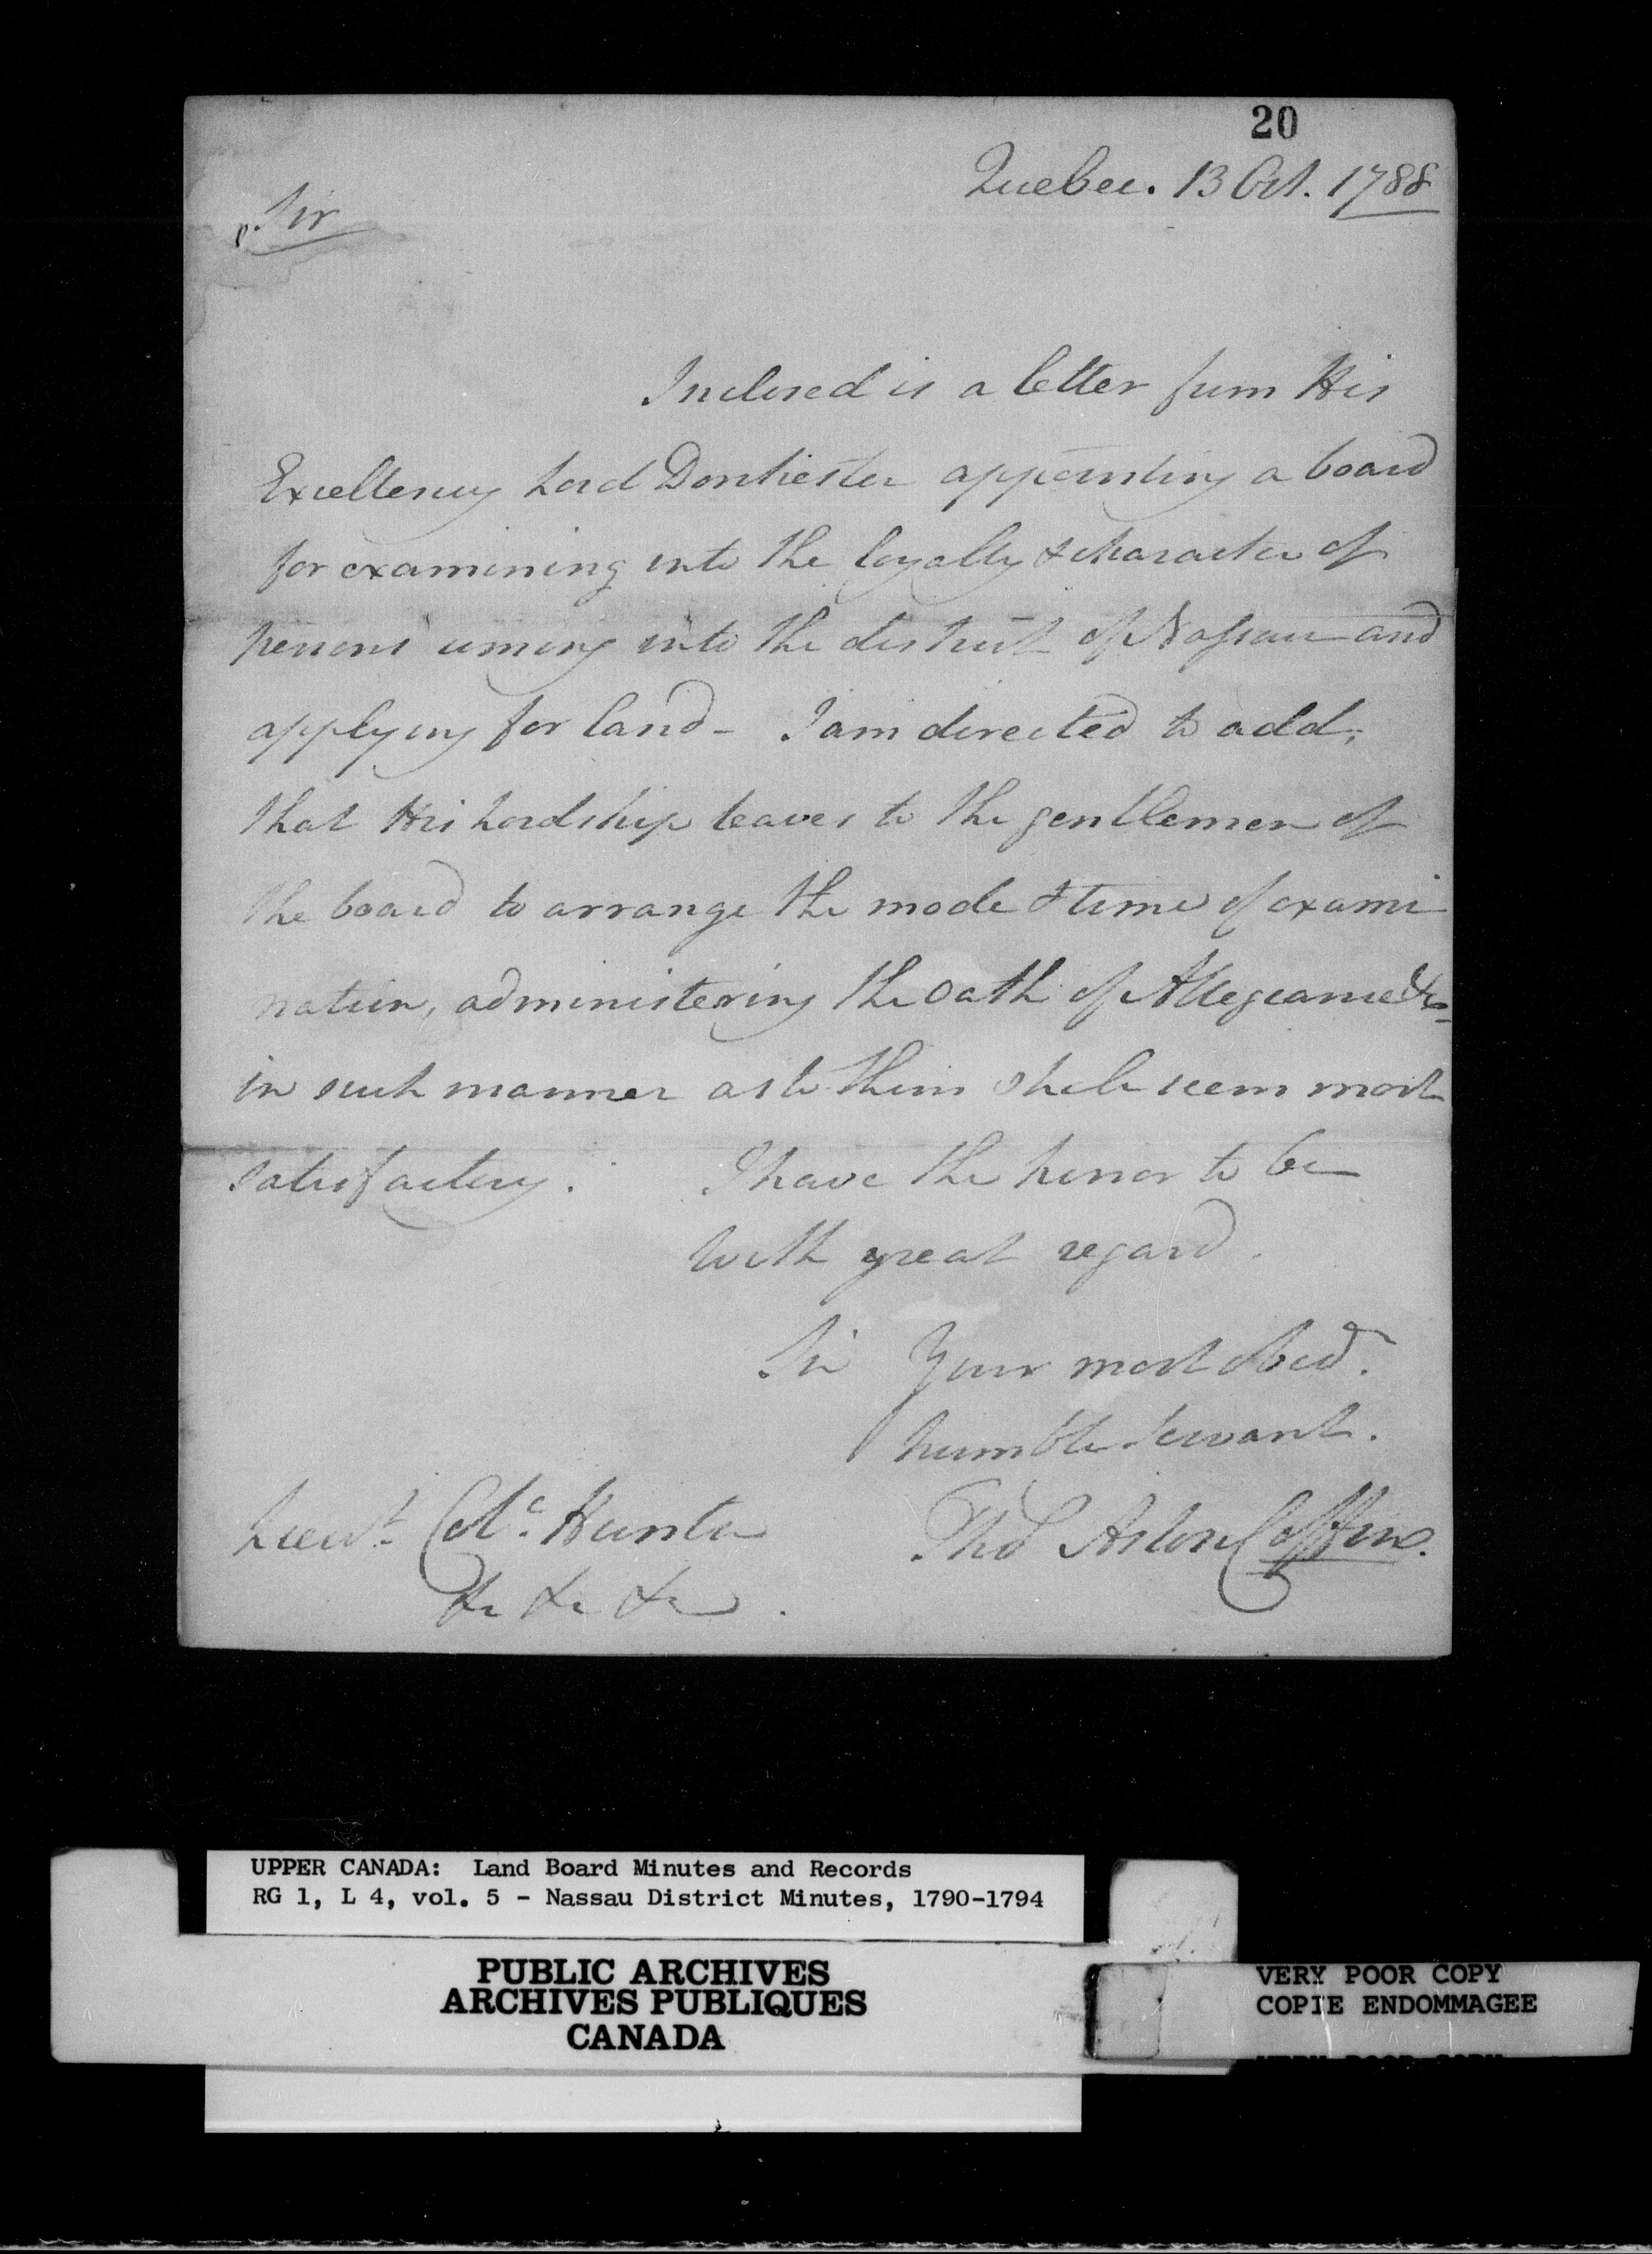 20
Quebec. 13 Oct. 1788
Sir
Inclosed is a letter from His
Excellency Lord Dorchester appointing a board
for examining into the loyalty & character of
persons coming into the district of Nassau and
applying for land - I am directed to add,
that His Lordship leaves to the gentlemen of
the board to arrange the mode & time of exami
nation, administering the oath of Allegiance &c
in such manner as to them shall seem most
satisfactory. I have the honor to be
With great regard.
Sir Your most obed.
humble Servant.
Lieut. Col. Hunter
Tho.s Aston Coffin.
&c &c &c.
UPPER CANADA: Land Board Minutes and Records
RG 1, L 4, vol. 5 - Nassau District Minutes, 1790-1794
PUBLIC ARCHIVES
ARCHIVES PUBLIQUES
CANADA
VERY POOR COPY
COPIE ENDOMMAGEE
VERY POOR COPY